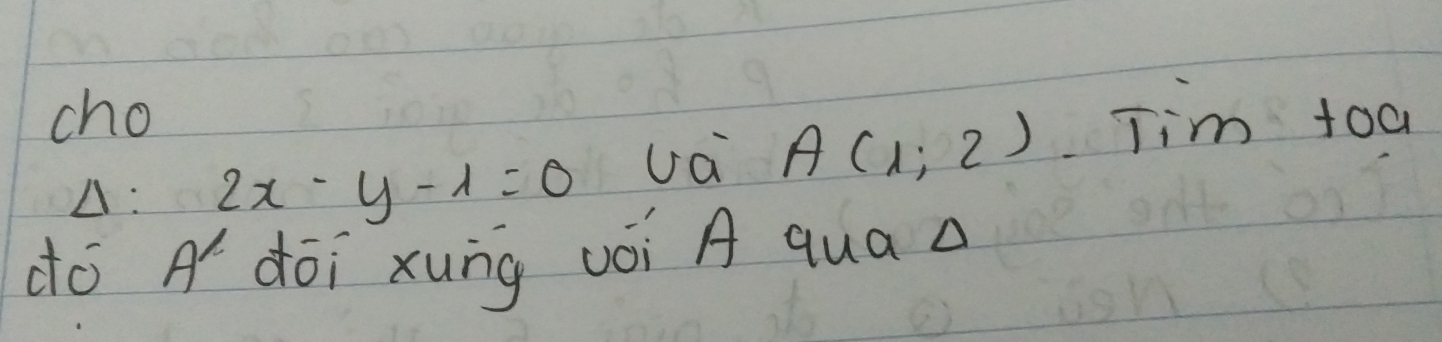 cho
Δ: 2x - y - 1 = 0 và A(1; 2). Tìm toạ
độ A' đối xứng với A qua Δ